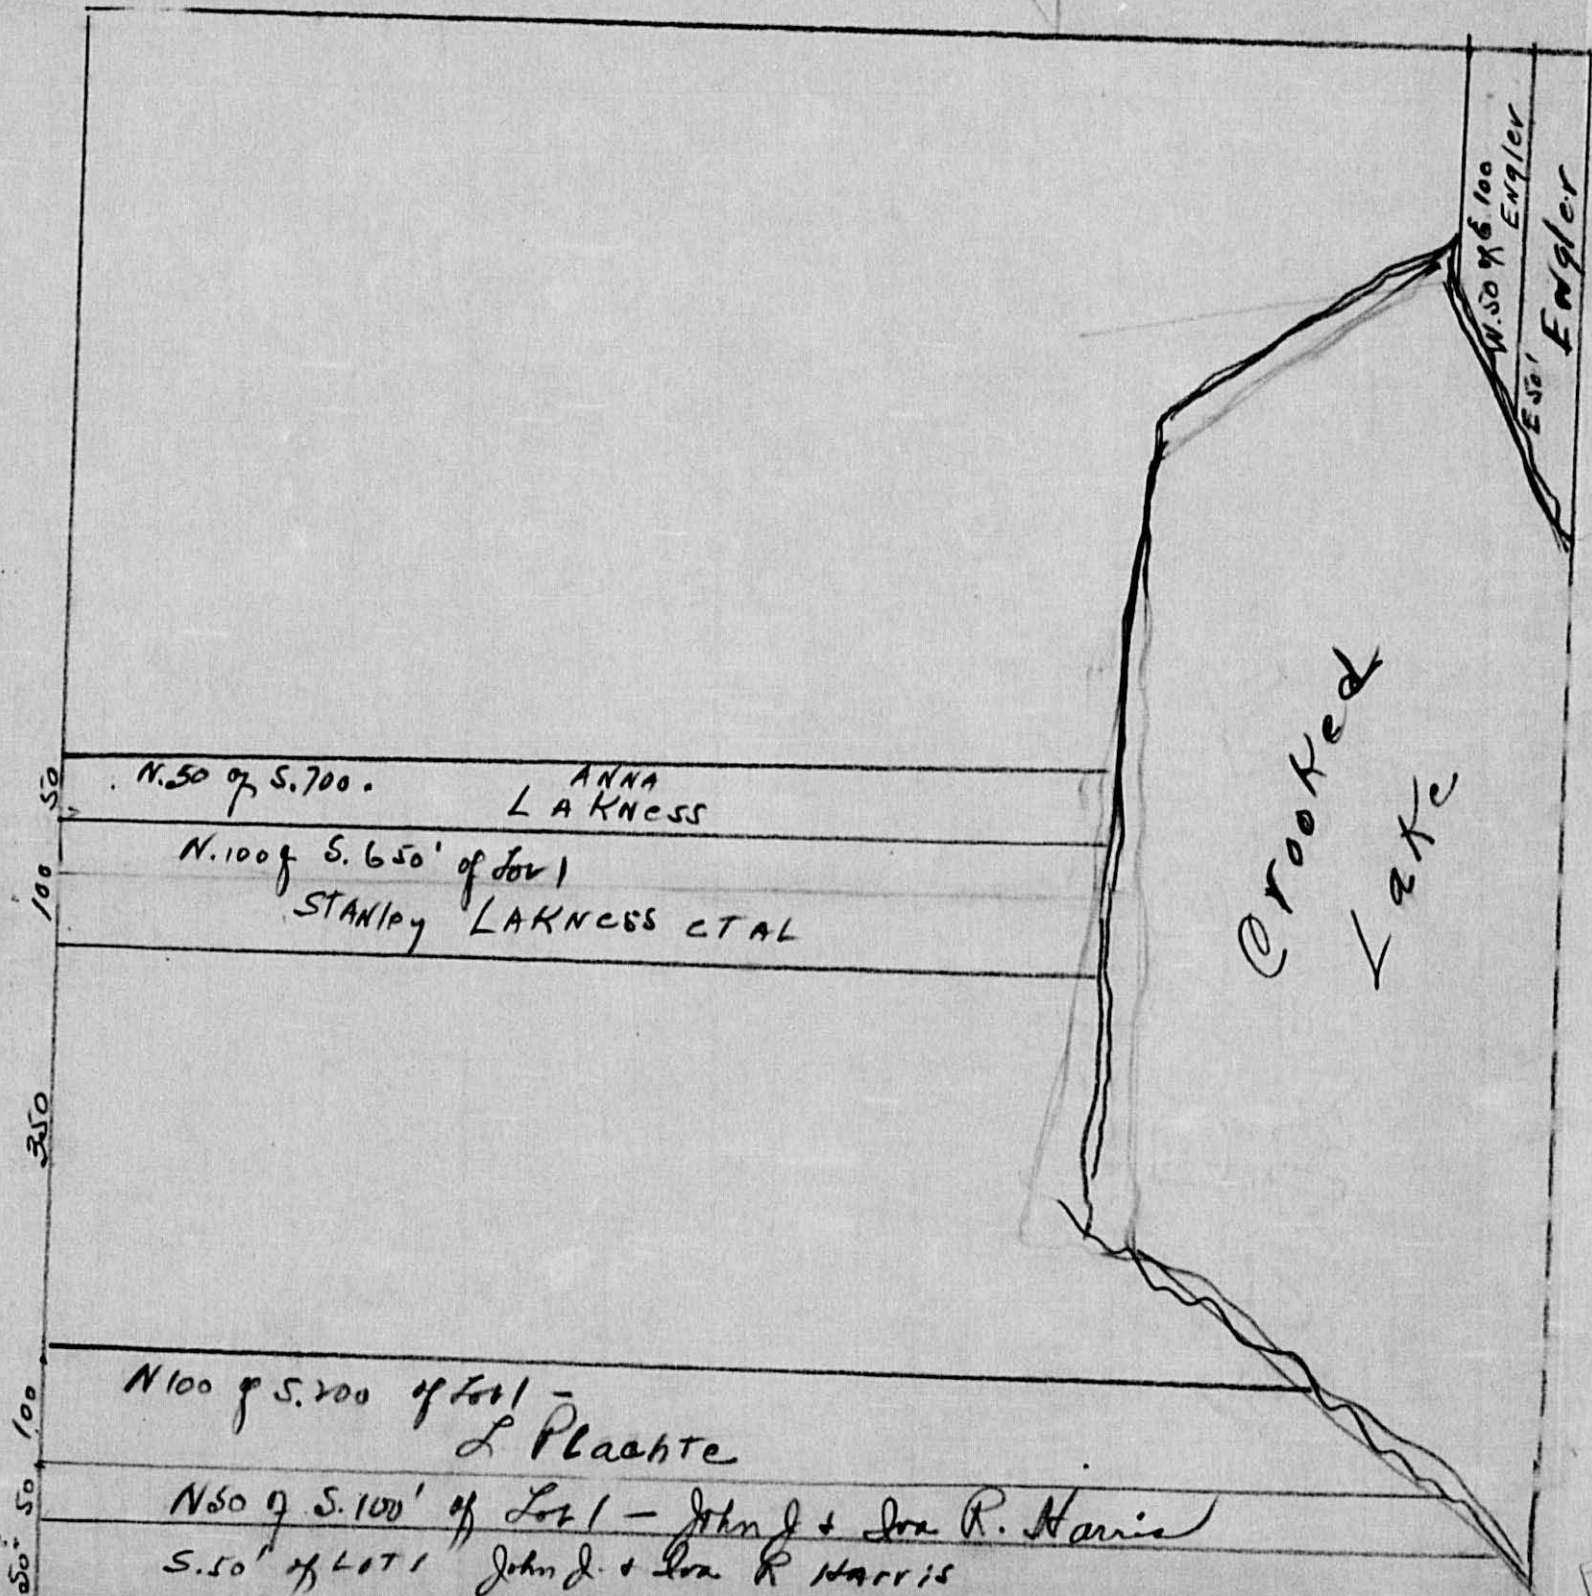 W.50 of E.100
Engler
E 50'
Engler
Crooked
Lake
50
N.50 of S.700.
ANNA
LAKNess
100
N.100 of S.650' of Lot 1
STANley LAKNess ETAL
350
100
N100 of S.200 of Lot 1 -
L Plachte
50
N50 of S.100' of Lot 1 - John J + Iva R. Harris
50'
S.50' of LOT 1 John J. + Iva R Harris